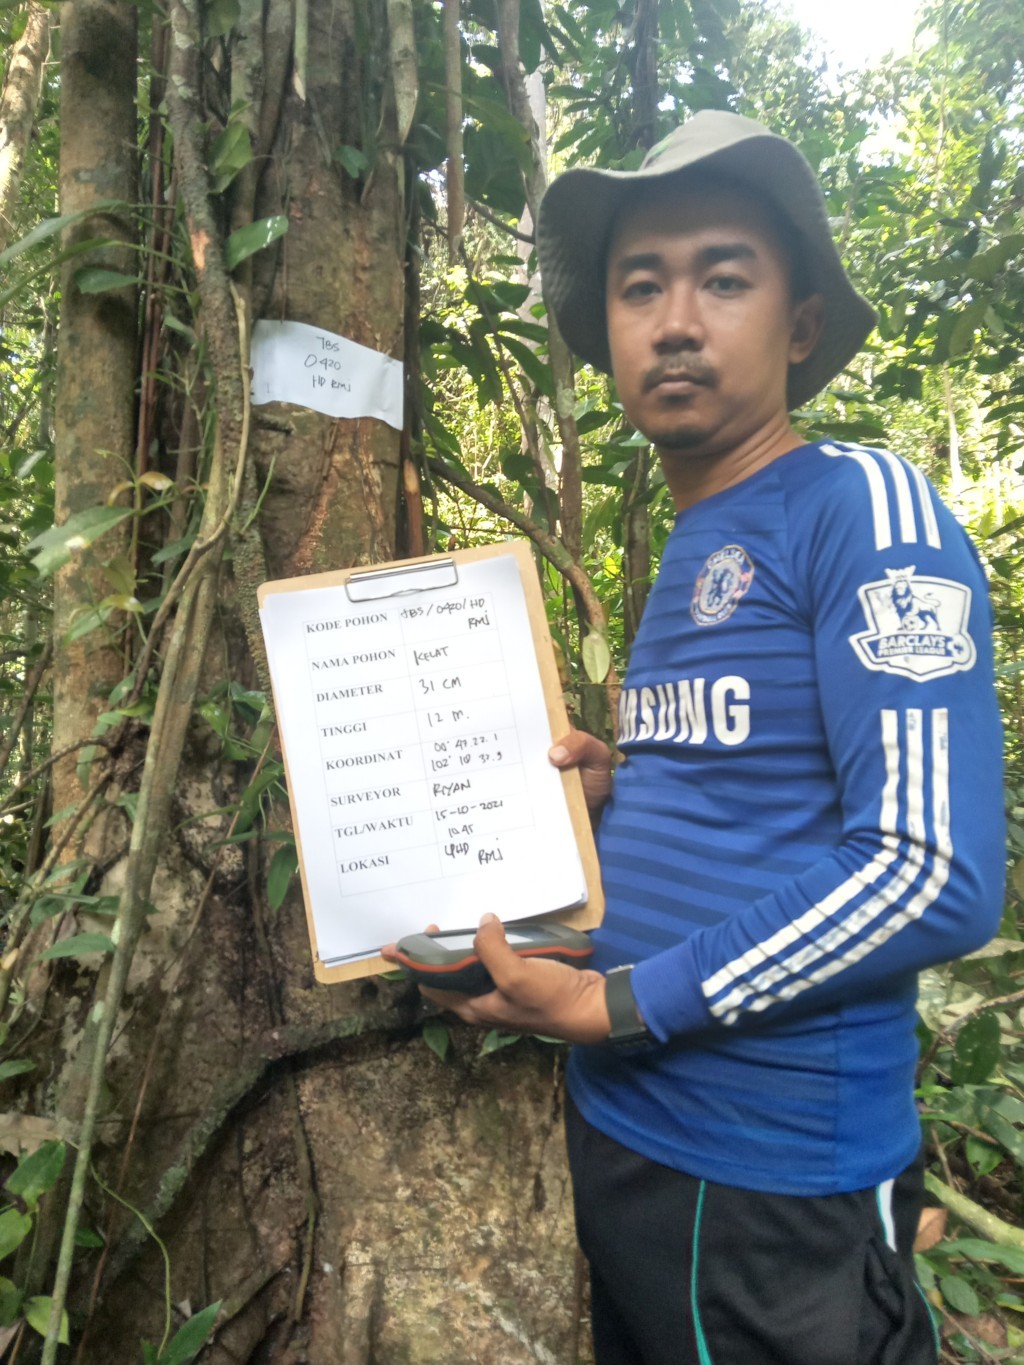 TBS
0420
HD RMJ
KODE POHON TBS/0420/HD
RMJ
NAMA POHON KELAT
DIAMETER 31 CM
TINGGI 12 M.
KOORDINAT 00° 47. 22. 1
102° 10' 37.9
SURVEYOR RIYAN
TGL/WAKTU 15-10-2021
10.45
LOKASI LPHD RMJ
CHELSEA
SAMSUNG
BARCLAYS
PREMIER LEAGUE